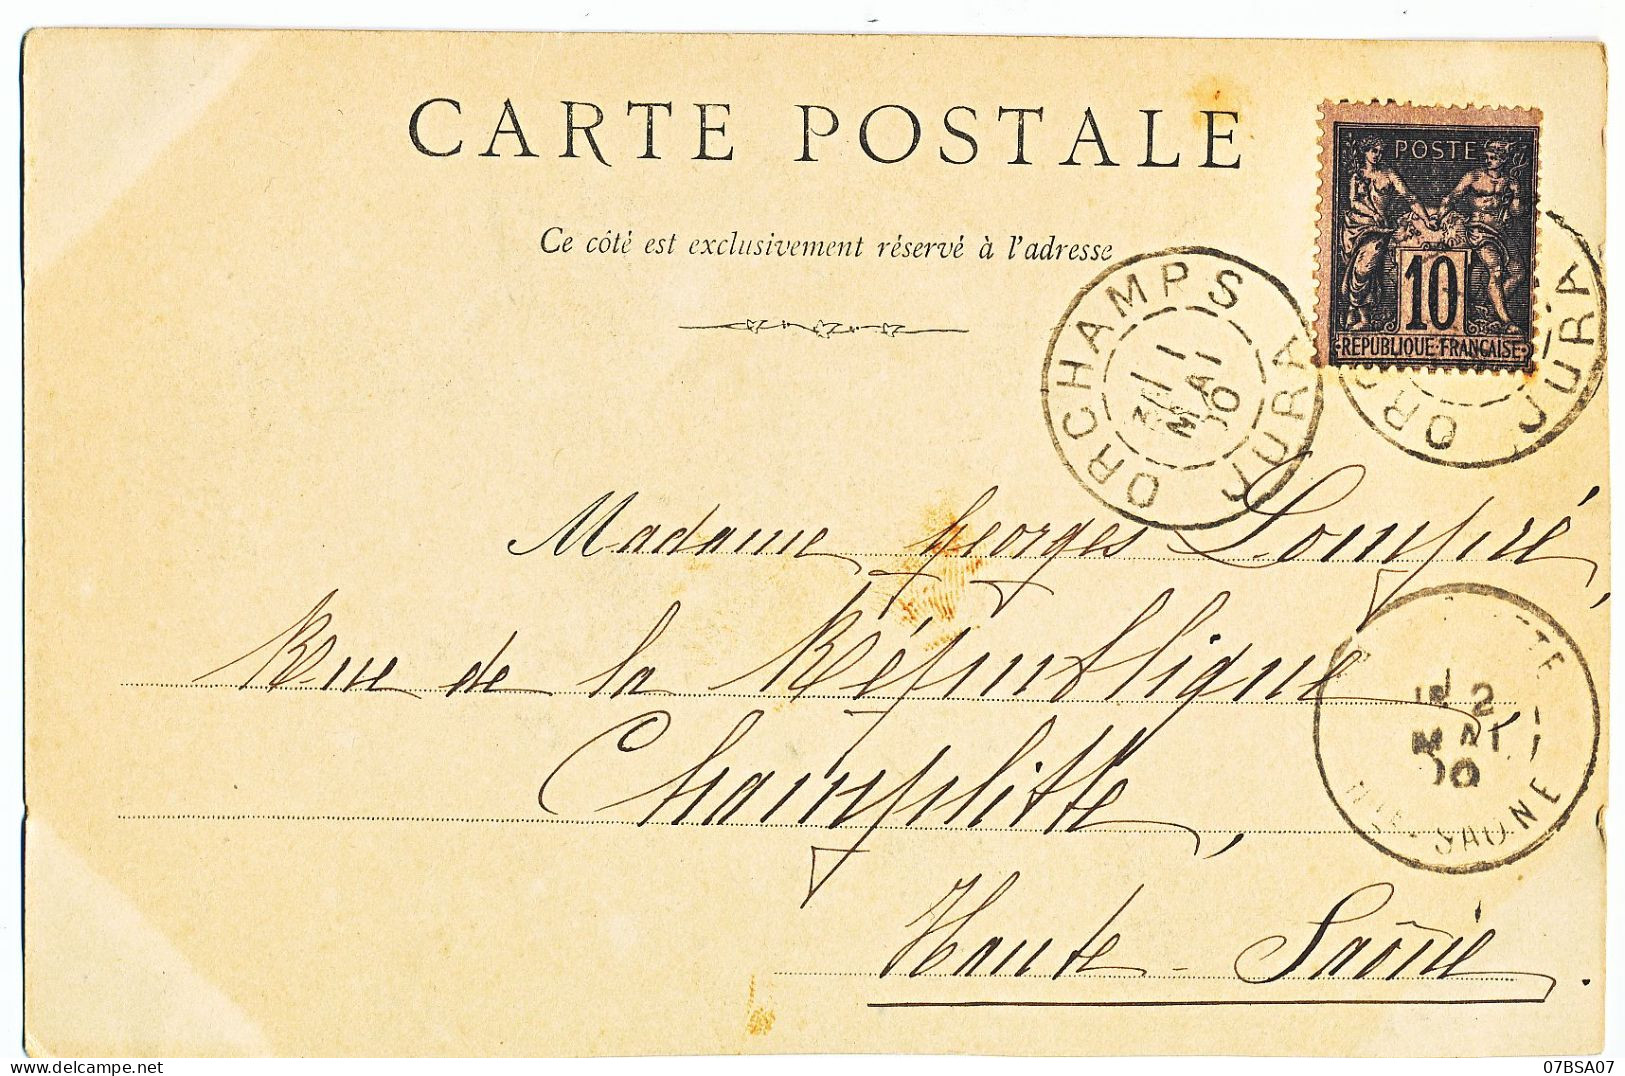 CARTE POSTALE
Ce côté est exclusivement réservé à l'adresse
POSTE
10
REPUBLIQUE FRANÇAISE
ORCHAMPS JURA
1
MAI
00
OR JURA
Madame Georges Lompré,
Rue de la République,
Champlitte,
Haute-Saône.
2
MAI
00
HTE-SAONE
07BSA07